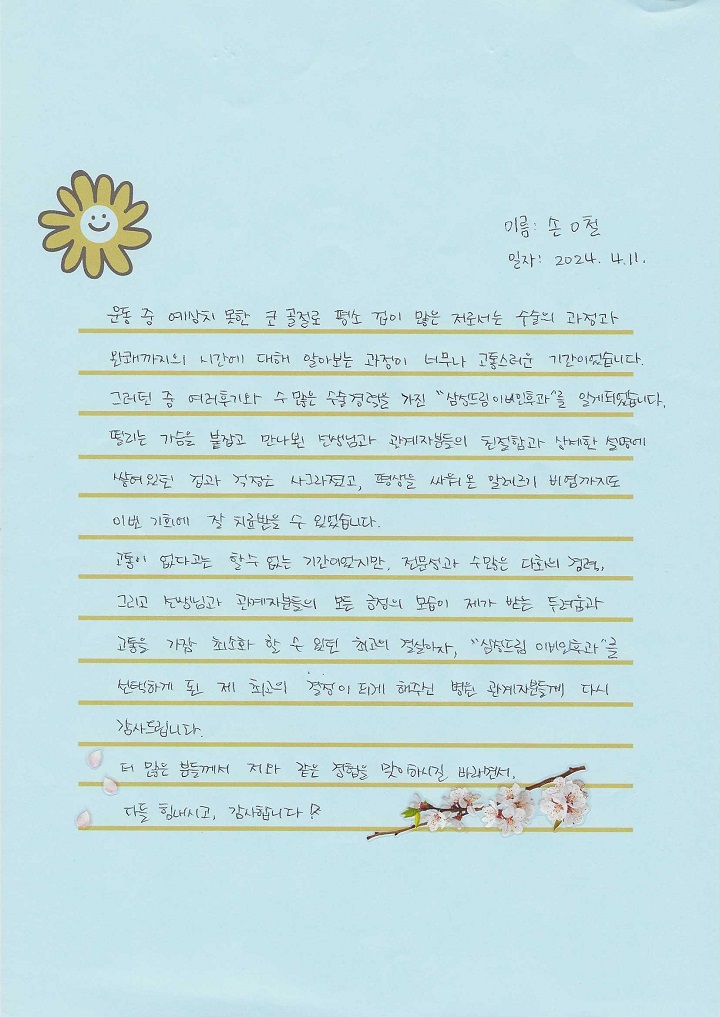 이름: 손 O 철
일자: 2024. 4.11.
운동 중 예상치 못한 코 골절로 평소 겁이 많은 저로서는 수술의 과정과
완쾌까지의 시간에 대해 알아보는 과정이 너무나 고통스러운 기간이었습니다.
그러던 중 여러후기와 수 많은 수술경력을 가진 "삼성드림이비인후과"를 알게되었습니다.
떨리는 가슴을 붙잡고 만나뵌 선생님과 관계자분들의 친절함과 상세한 설명에
쌓여있던 겁과 걱정은 사그라졌고, 평생을 싸워온 알레르기 비염까지도
이번 기회에 잘 치료받을 수 있었습니다.
고통이 없다고는 할수 없는 기간이었지만, 전문성과 수많은 다회의 경력,
그리고 선생님과 관계자분들의 모든 긍정의 모습이 제가 받는 두려움과
고통을 가장 최소화 할 수 있던 최고의 결실이자, "삼성드림 이비인후과"를
선택하게 된 제 최고의 결정이 되게 해주신 병원 관계자분들께 다시
감사드립니다.
더 많은 분들께서 저와 같은 경험을 맞이하시길 바라면서,
다들 힘내시고, 감사합니다